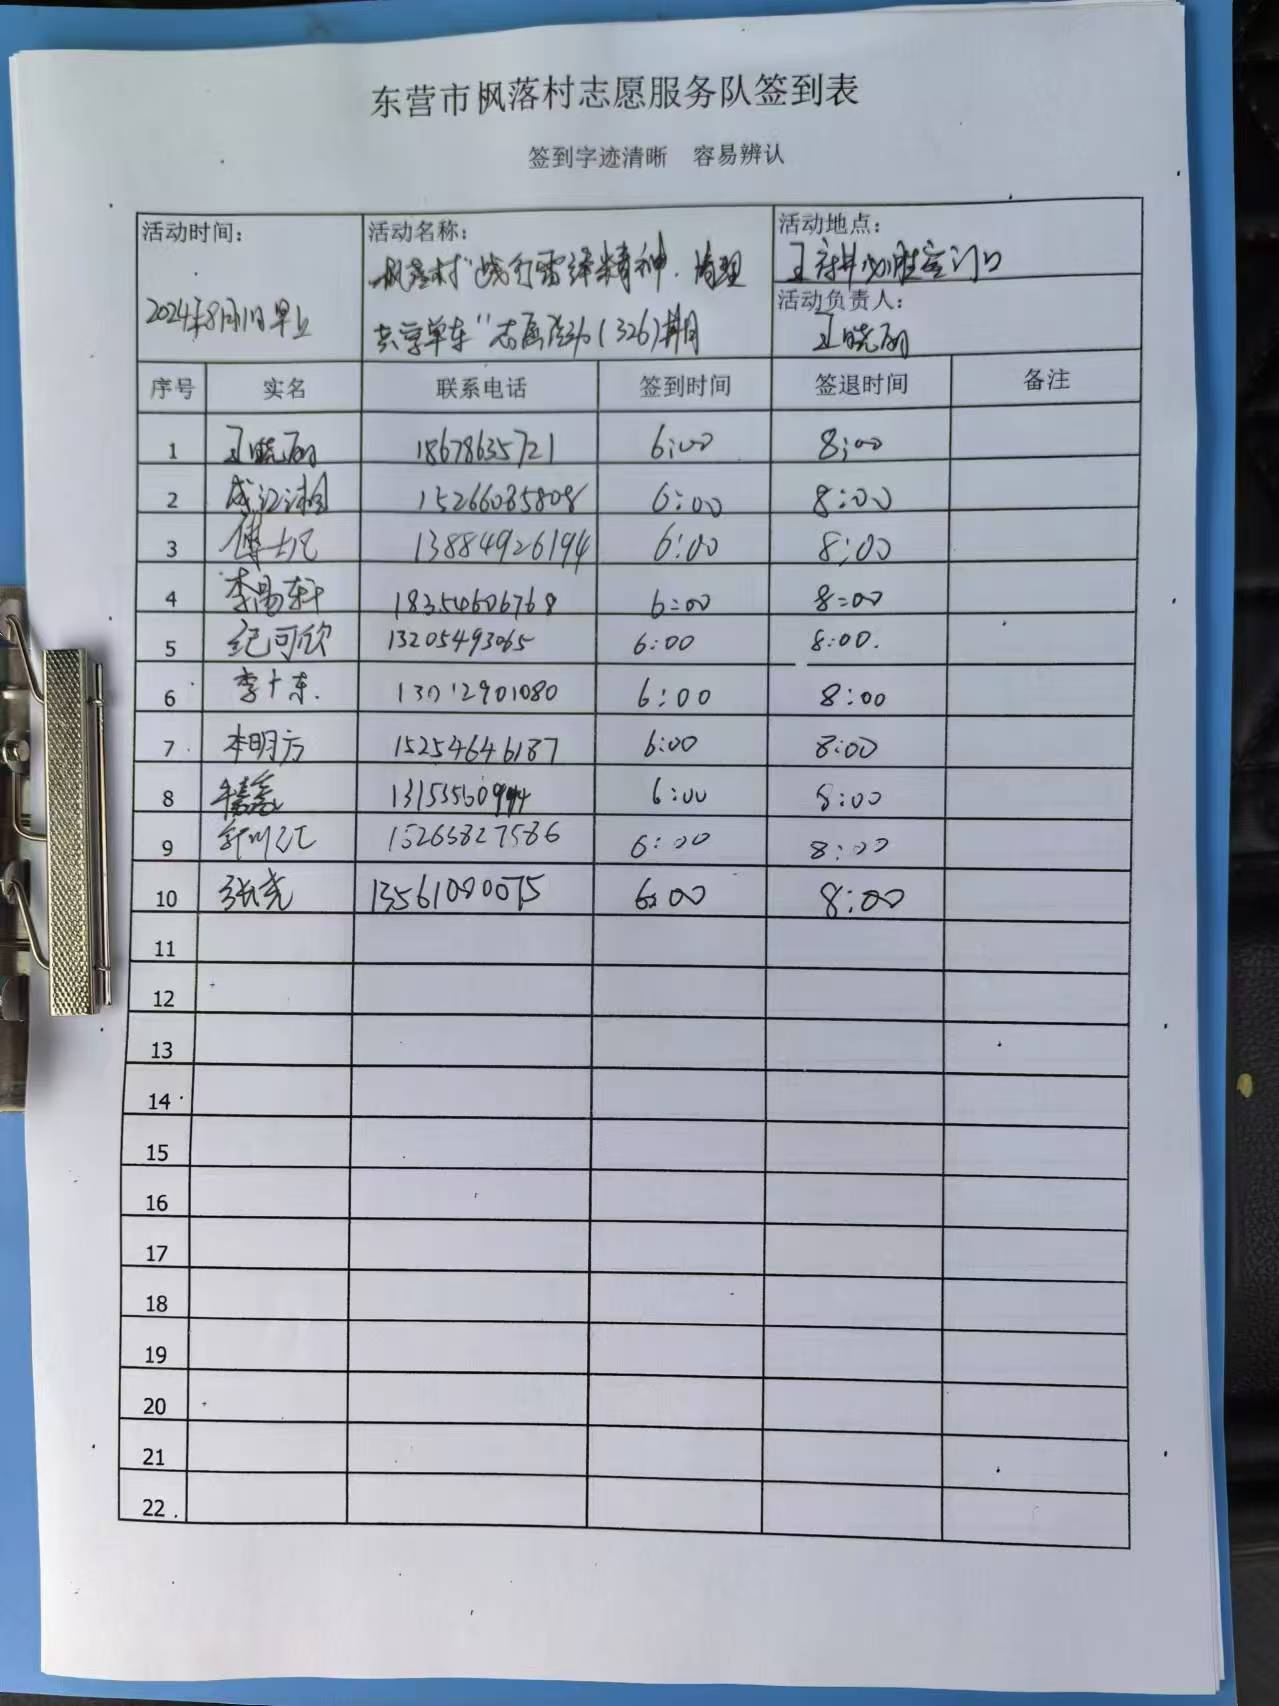 东营市枫落村志愿服务队签到表
签到字迹清晰 容易辨认
活动时间:
2024年8月11日早上
活动名称:
枫落村"践行雷锋精神.清理
共享单车"志愿活动(326)期
活动地点:
王府井必胜客门口
活动负责人:
王晓丽
序号 实名 联系电话 签到时间 签退时间 备注
1 王晓丽 18678635721 6:00 8:00
2 15266035808 6:00 8:00
3 傅士凡 13884926194 6:00 8:00
4 李易轩 18354606768 6:00 8:00
5 纪可欣 13205493065 6:00 8:00.
6 李广东. 13012901080 6:00 8:00
7 本明方 15254646187 6:00 8:00
8 6:00 8:00
9 15265827586 6:00 8:00
10 张尧 13561080075 6:00 8:00
11
12
13
14
15
16
17
18
19
20
21
22